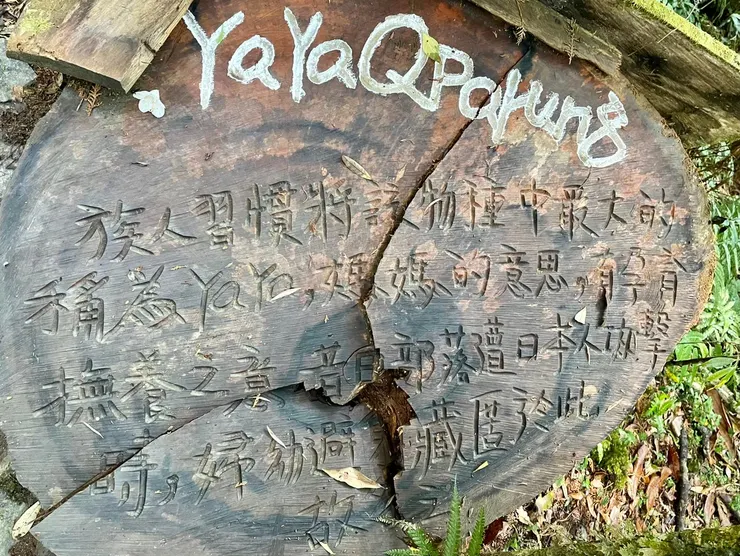 YaYa Qparung
族人習慣將該物種中最大的
稱為YaYa,媽媽的意思,有孕育
撫養之意,昔日部落遭日本砲擊
時,婦幼避藏匿於此,
故